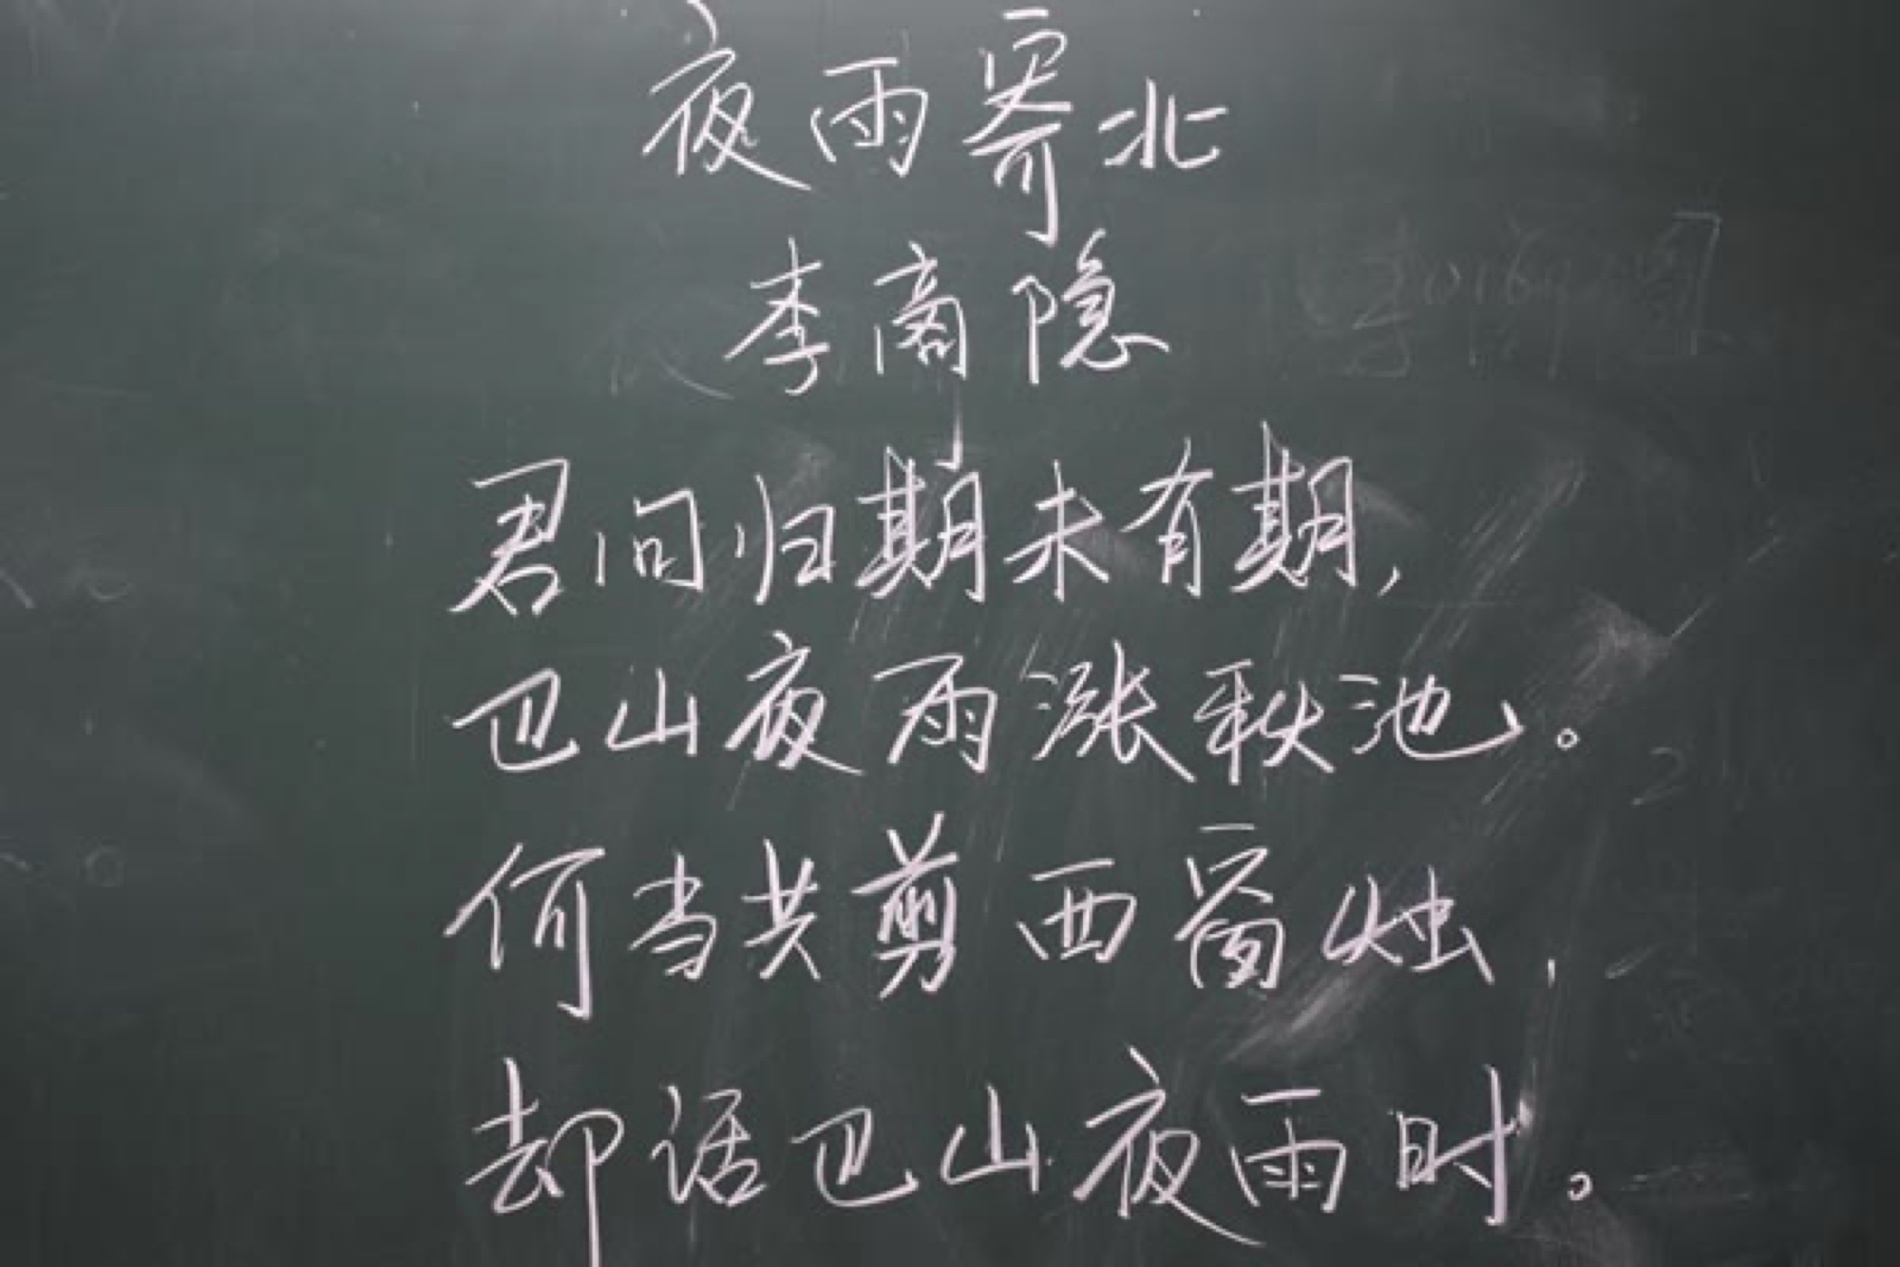 夜雨寄北
李商隐
君问归期未有期,
巴山夜雨涨秋池。
何当共剪西窗烛,
却话巴山夜雨时。